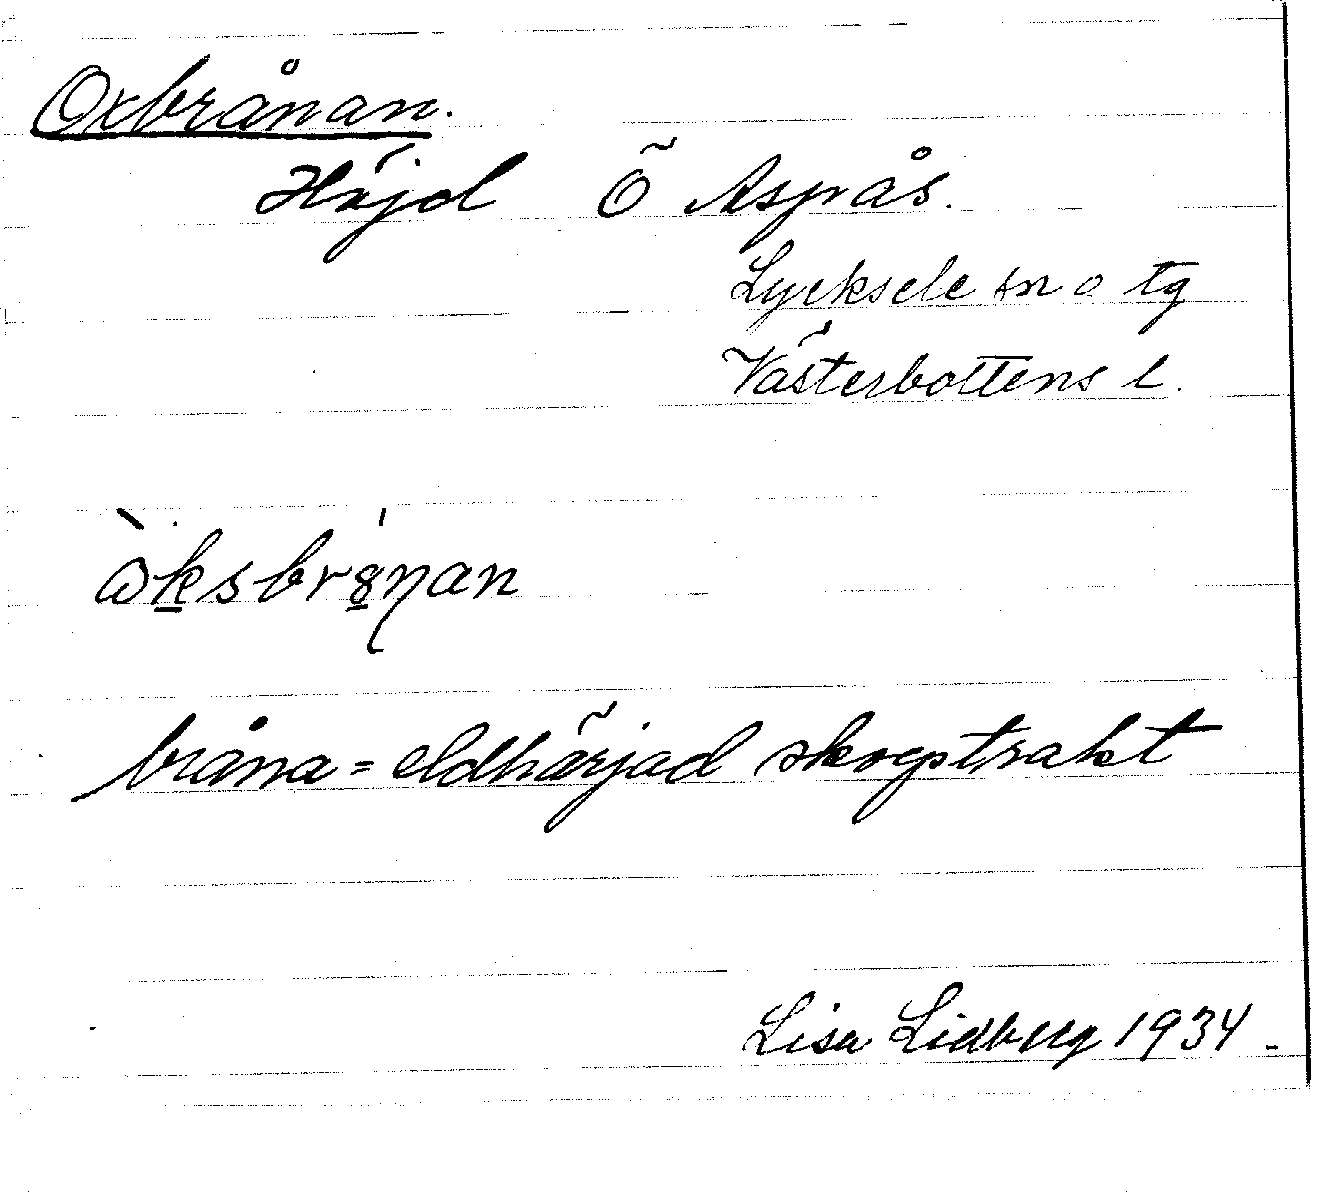 Oxbrånan.
Höjd Ö Aspås.
Lycksele sn o tg
Västerbottens l.
bråna = eldhärjad skogstrakt
Lisa Lidberg 1934